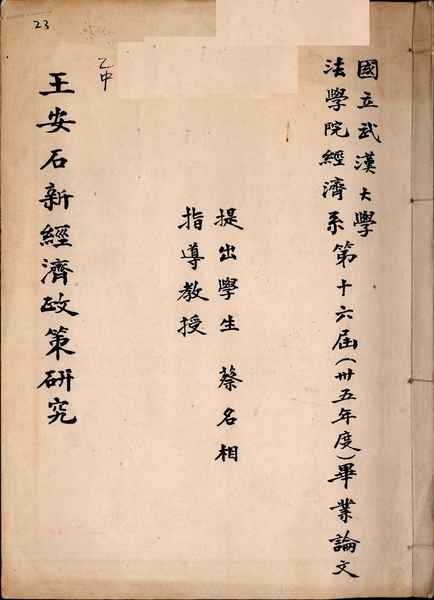 國立武漢大學
法學院經濟系第十六屆(卅五年度)畢業論文
提出學生 蔡名相
指導教授
王安石新經濟政策研究
乙中
23